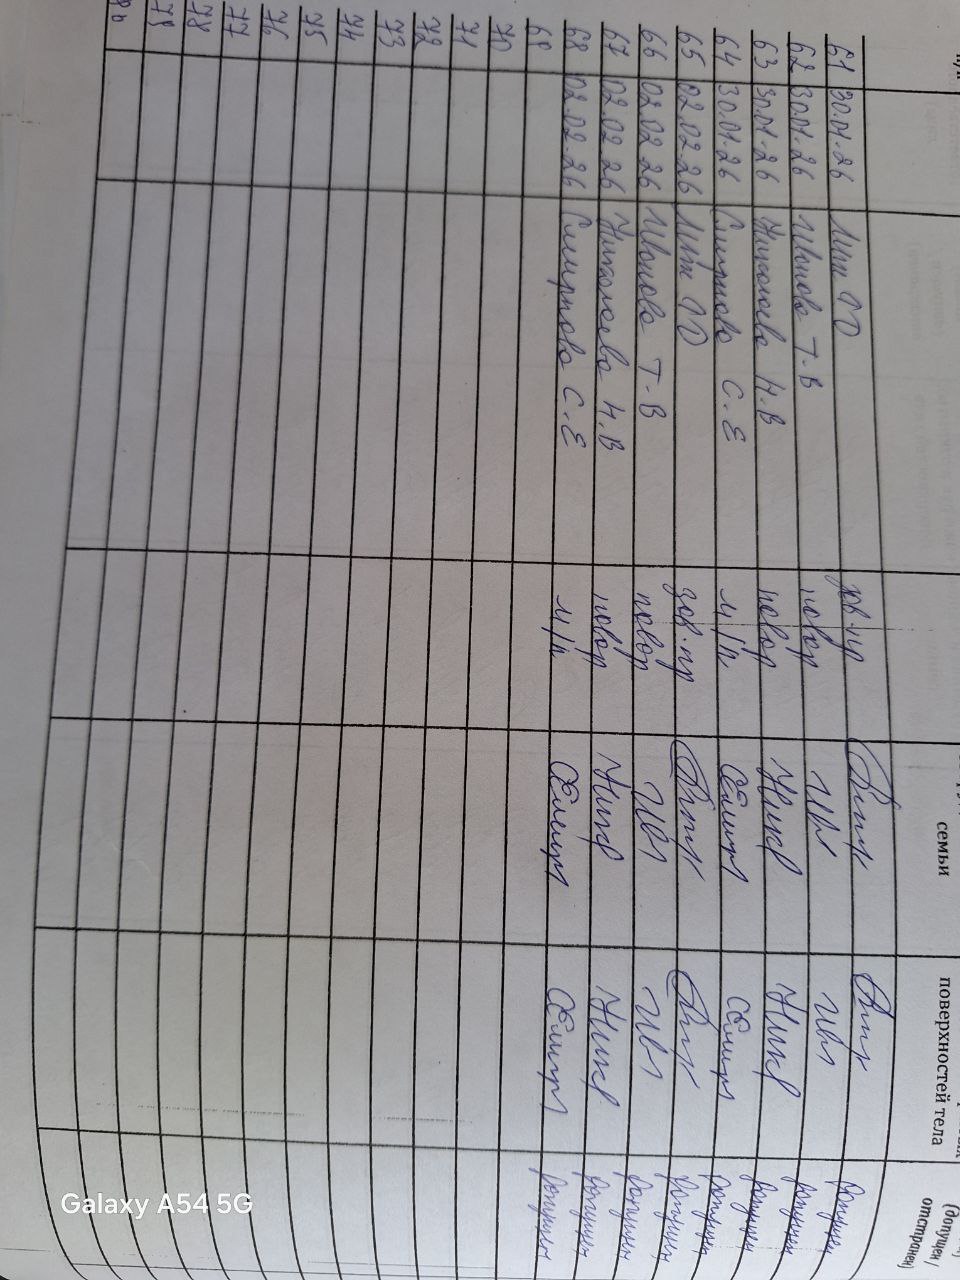 семьи
поверхностей тела
(допущен /
отстранен)
61 30.01.26 зав.пр допущен
62 30.01.26 Иванова Т.В повар Ив допущен Ив
63 30.01.26 Николаева Н.В повар Ник допущен Ник
64 30.01.26 Смирнова С.Е м/п Смирн Смирн допущен
65 02.02.26 зав.пр допущен
66 02.02.26 Иванова Т.В повар Ив Ив допущен
67 02.02.26 Николаева Н.В повар Ник Ник допущен
68 02.02.26 Смирнова С.Е м/п Смирн Смирн допущен
69
70
71
72
73
74
75
76
77
78
79
80
Galaxy A54 5G